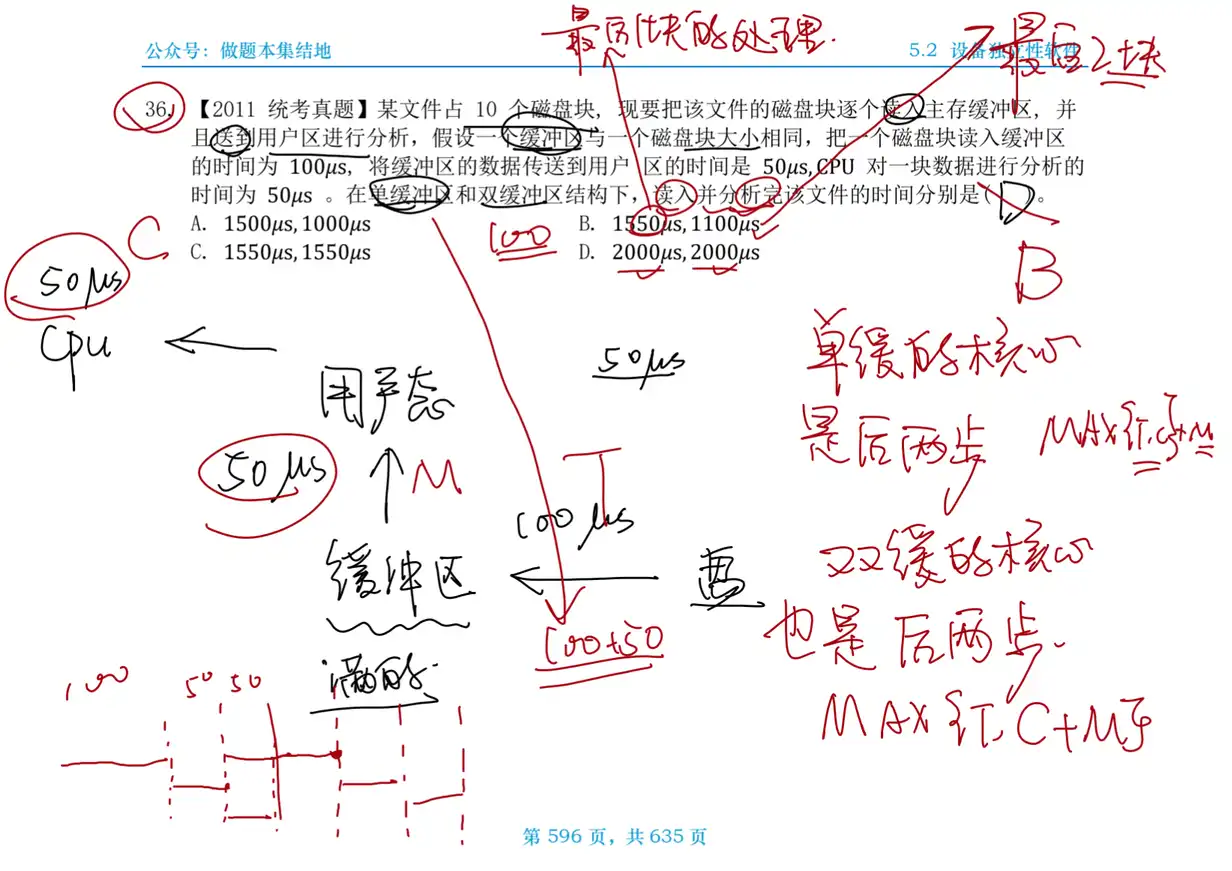 最后1块的处理.
公众号：做题本集结地
5.2 设备独立性软件
最后2块
36. 【2011 统考真题】某文件占 10 个磁盘块，现要把该文件的磁盘块逐个读入主存缓冲区，并
且送到用户区进行分析，假设一个缓冲区与一个磁盘块大小相同，把一个磁盘块读入缓冲区
的时间为 100μs，将缓冲区的数据传送到用户 区的时间是 50μs,CPU 对一块数据进行分析的
时间为 50μs 。在单缓冲区和双缓冲区结构下，读入并分析完该文件的时间分别是( D )。
A. 1500μs,1000μs
B. 1550μs,1100μs
C. 1550μs,1550μs
D. 2000μs,2000μs
C
100
B
50 μs
CPU
用户态
50 μs
单缓的核心
是后两步
MAX{T,C}+M
50 μs
M
T
100 μs
缓冲区
双缓的核心
也是后两步.
100+50
满的.
MAX{T, C+M}
100 50 50
第 596 页，共 635 页